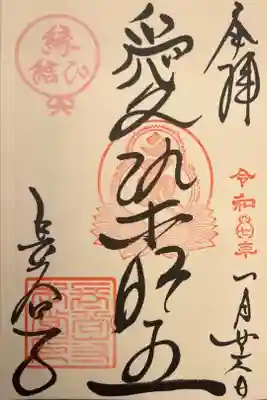 奉拝
令和七年
一月廿六日
愛染明王
縁結び
長谷寺